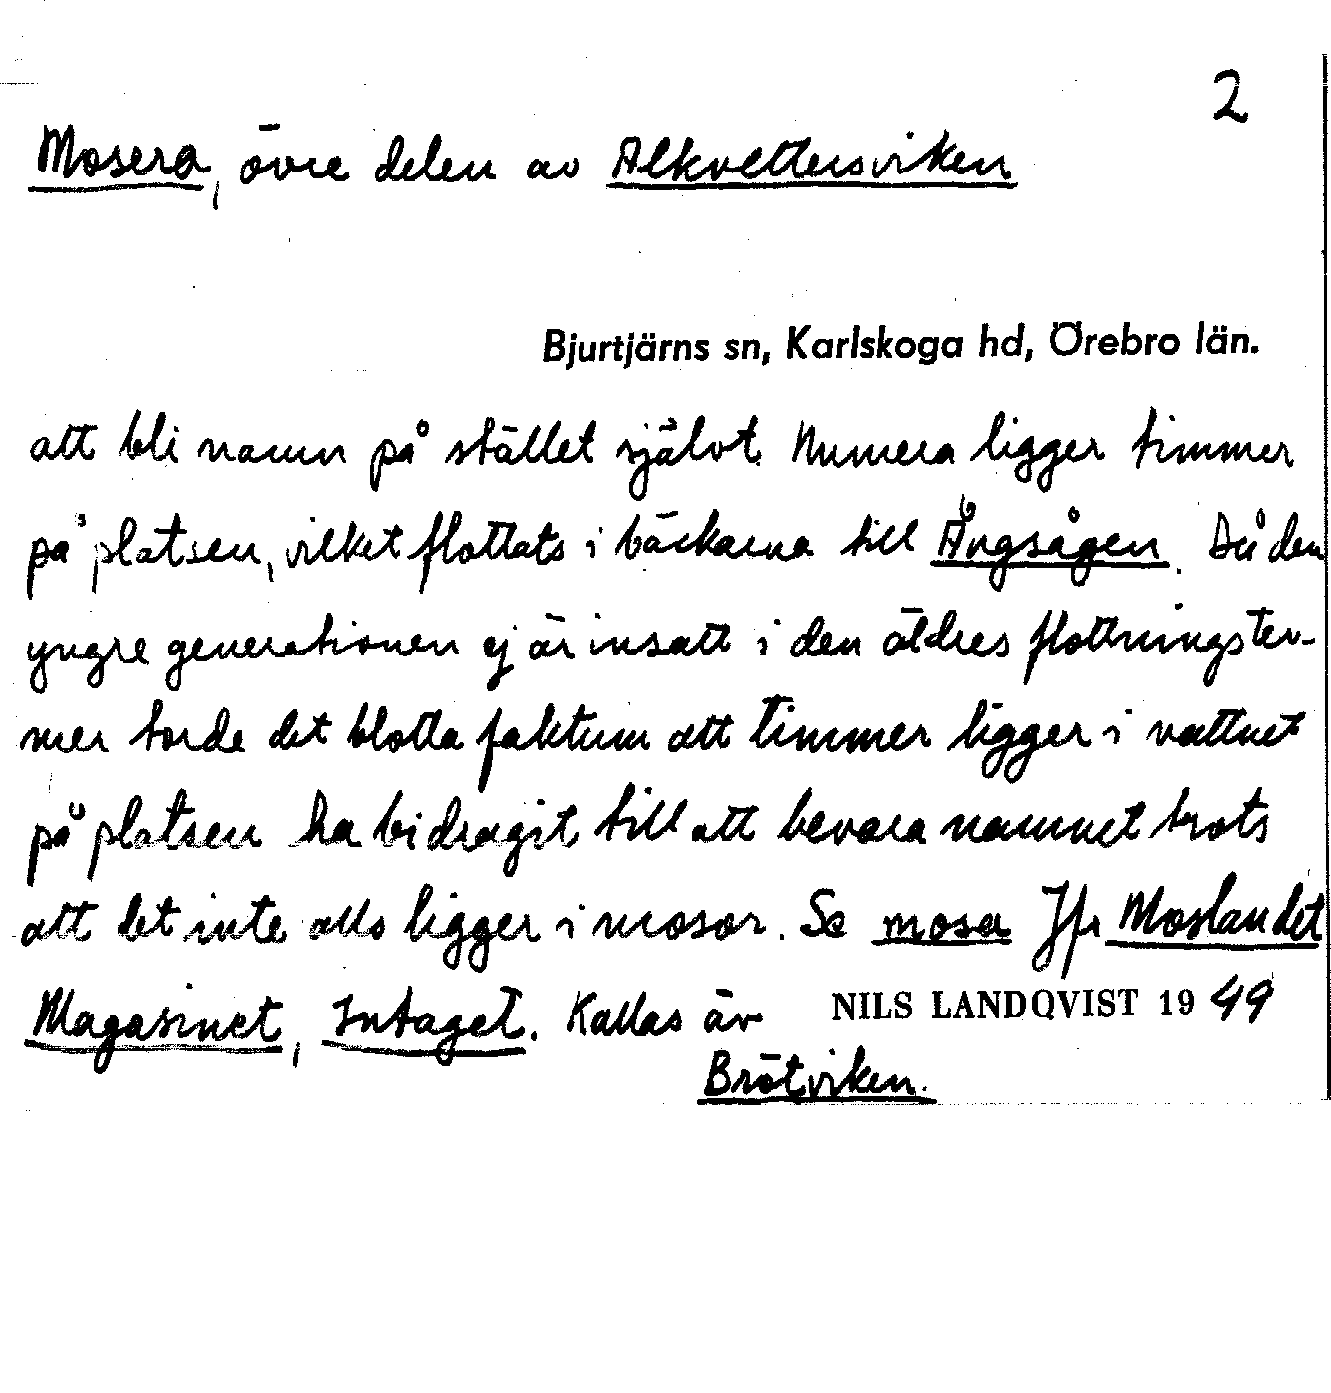 2
Mosera, övre delen av Alkvettersviken
Bjurtjärns sn, Karlskoga hd, Örebro län.
att bli namn på stället självt. Numera ligger timmer
på platsen, vilket flottats i bäckarna till Ångsågen. Då den
yngre generationen ej är insatt i den äldres flottningster-
mer torde det blotta faktum att timmer ligger i vattnet
på platsen ha bidragit till att bevara namnet trots
att det inte alls ligger i mosor. Se mosa Jfr Moslandet
Magasinet, Intaget. Kallas äv
NILS LANDQVIST 1949
Brötviken.